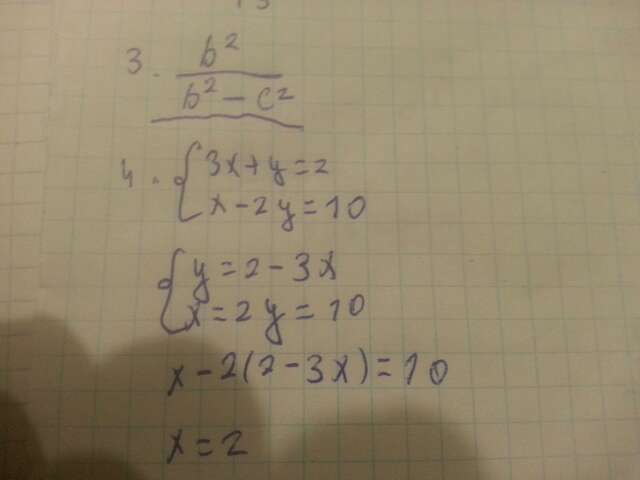 3. b²
b² - c²
4. { 3x+y=2
x-2y=10
{ y=2-3x
x=2y=10
x-2(2-3x)=10
x=2